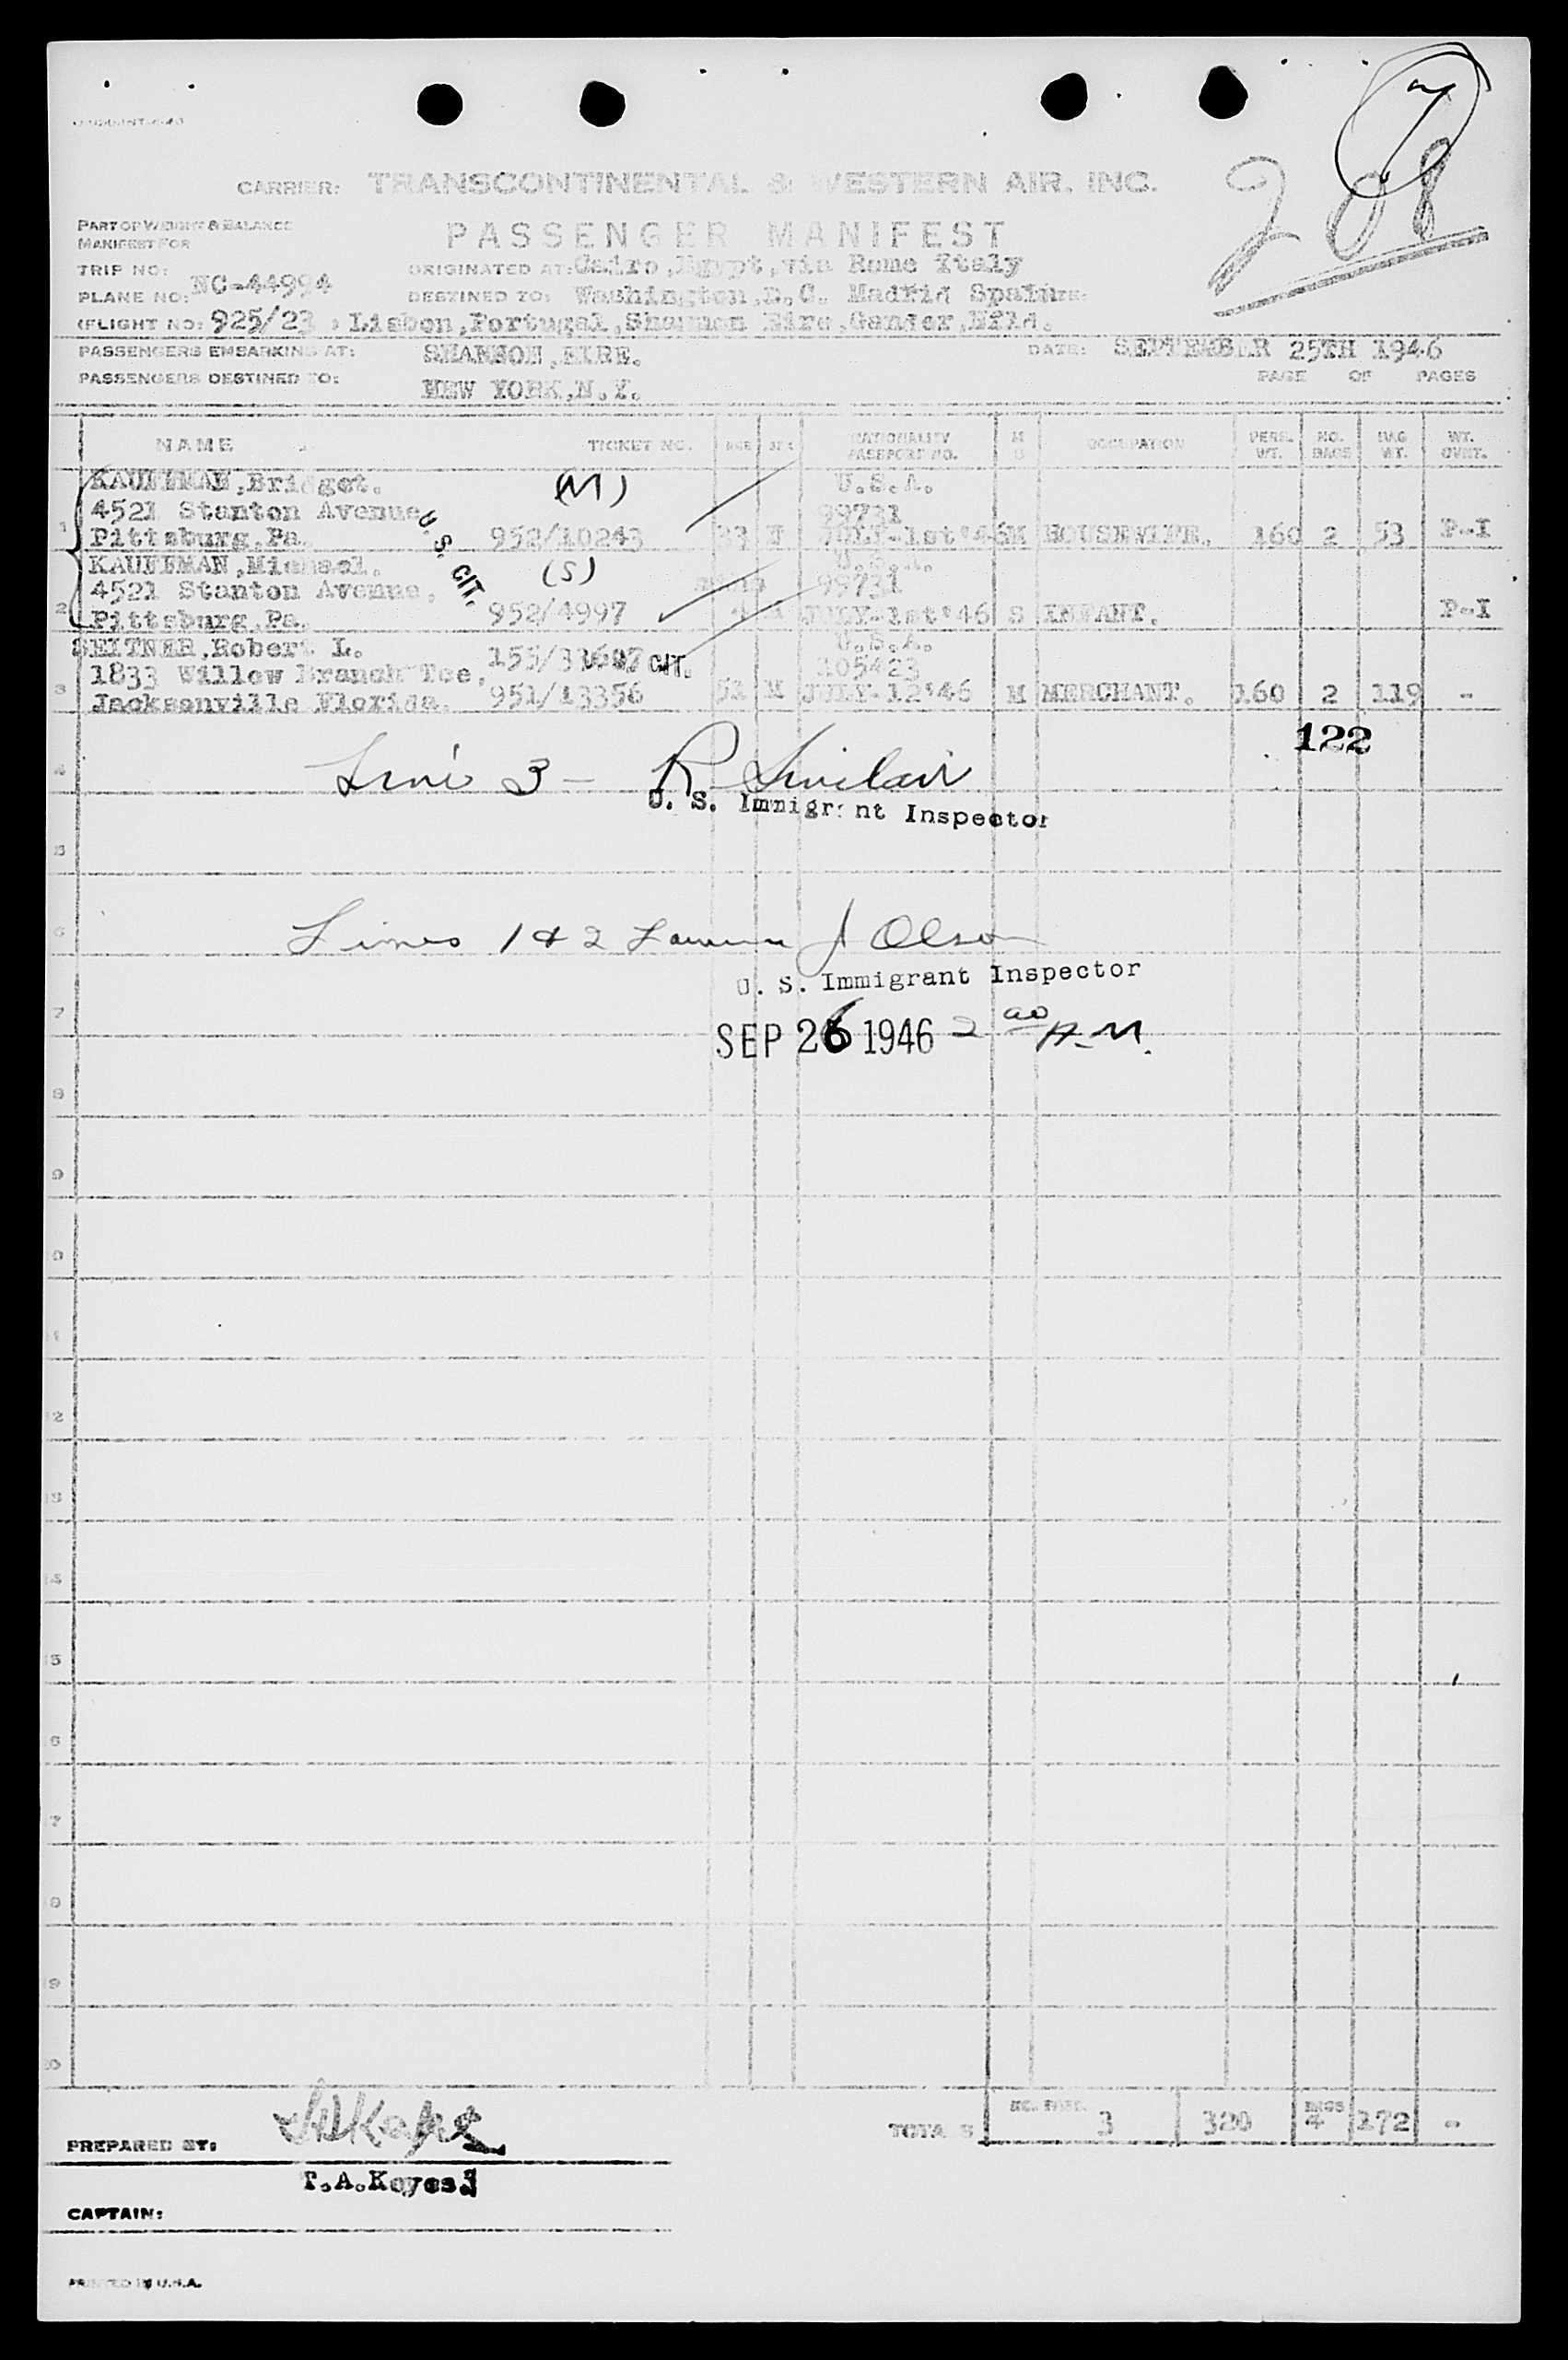 208
7
CARRIER: TRANSCONTINENTAL & WESTERN AIR. INC.
PART OF WEIGHT & BALANCE
MANIFEST FOR
PASSENGER MANIFEST
TRIP NO:
ORIGINATED AT: Cairo,Egypt,via Rome Italy
PLANE NO: NC-44994
DESTINED TO: Washington,D.C. Madrid Spain
FLIGHT NO: 925/23 Lisbon,Portugal,Shannon Eire,Gander,Nfld.
PASSENGERS EMBARKING AT: SHANNON,EIRE.
DATE: SEPTEMBER 25TH 1946
PASSENGERS DESTINED TO: NEW YORK,N.Y.
PAGE OF PAGES
NAME TICKET NO. AGE SEX NATIONALITY PASSPORT NO. M S OCCUPATION PERS. WT. NO. BAGS BAG WT. WT. OVHT.
KAUFFMAN,Bridget. (M) U.S.A.
4521 Stanton Avenue 99731
1 Pittsburg,Pa. 952/10243 F JULY-1st'46 M HOUSEWIFE. 160 2 53 P-I
U.S. CIT.
KAUFFMAN,Michael. (S) U.S.A.
4521 Stanton Avenue, 99731
2 Pittsburg,Pa. 952/4997 JULY-1st'46 S INFANT. P-I
SEITNER,Robert L. U.S.A.
1833 Willow Branch Tce, CIT. 105423
3 Jacksonville Florida. 951/13356 M JULY-12'46 M MERCHANT. 160 2 119 -
122
4 Line 3 - R Sinclair
U. S. Immigrant Inspector
5
6 Lines 1 & 2 J Olson
U. S. Immigrant Inspector
7
SEP 26 1946 2 00 A-M.
8
9
12
13
TOTALS NO. PASS. 3 320 BAGS 4 172 -
PREPARED BY:
T.A.Keyes
CAPTAIN:
PRINTED IN U.S.A.